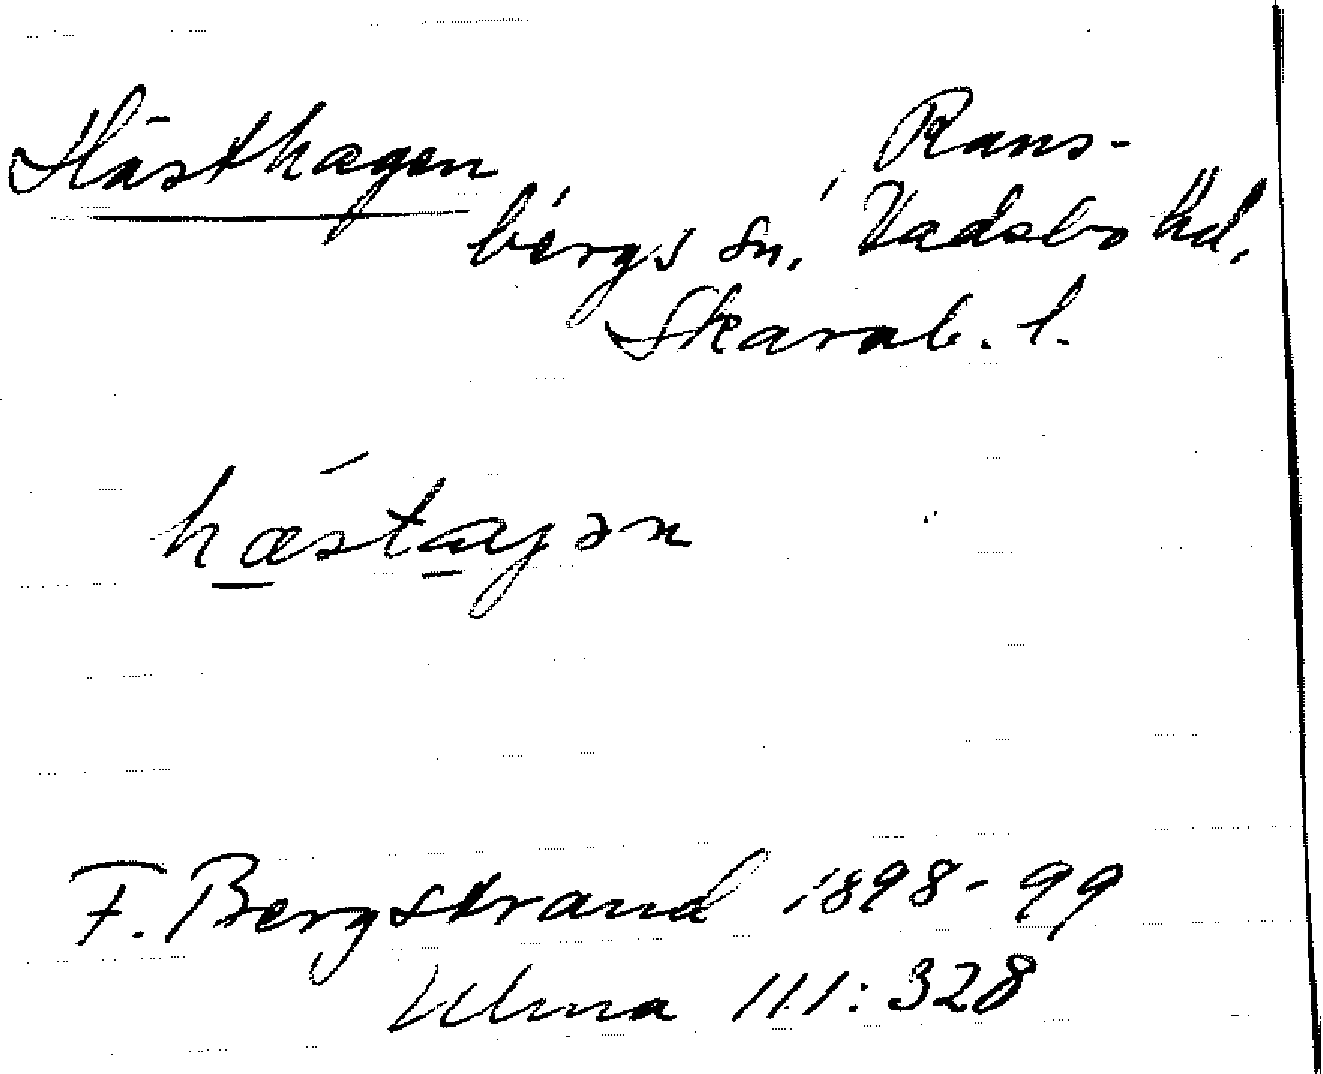 Hästhagen Rans-
bergs sn, Vadsbo hd,
Skarab. l.
hæstaγən
F. Bergstrand 1898-99
Ulma 111:328